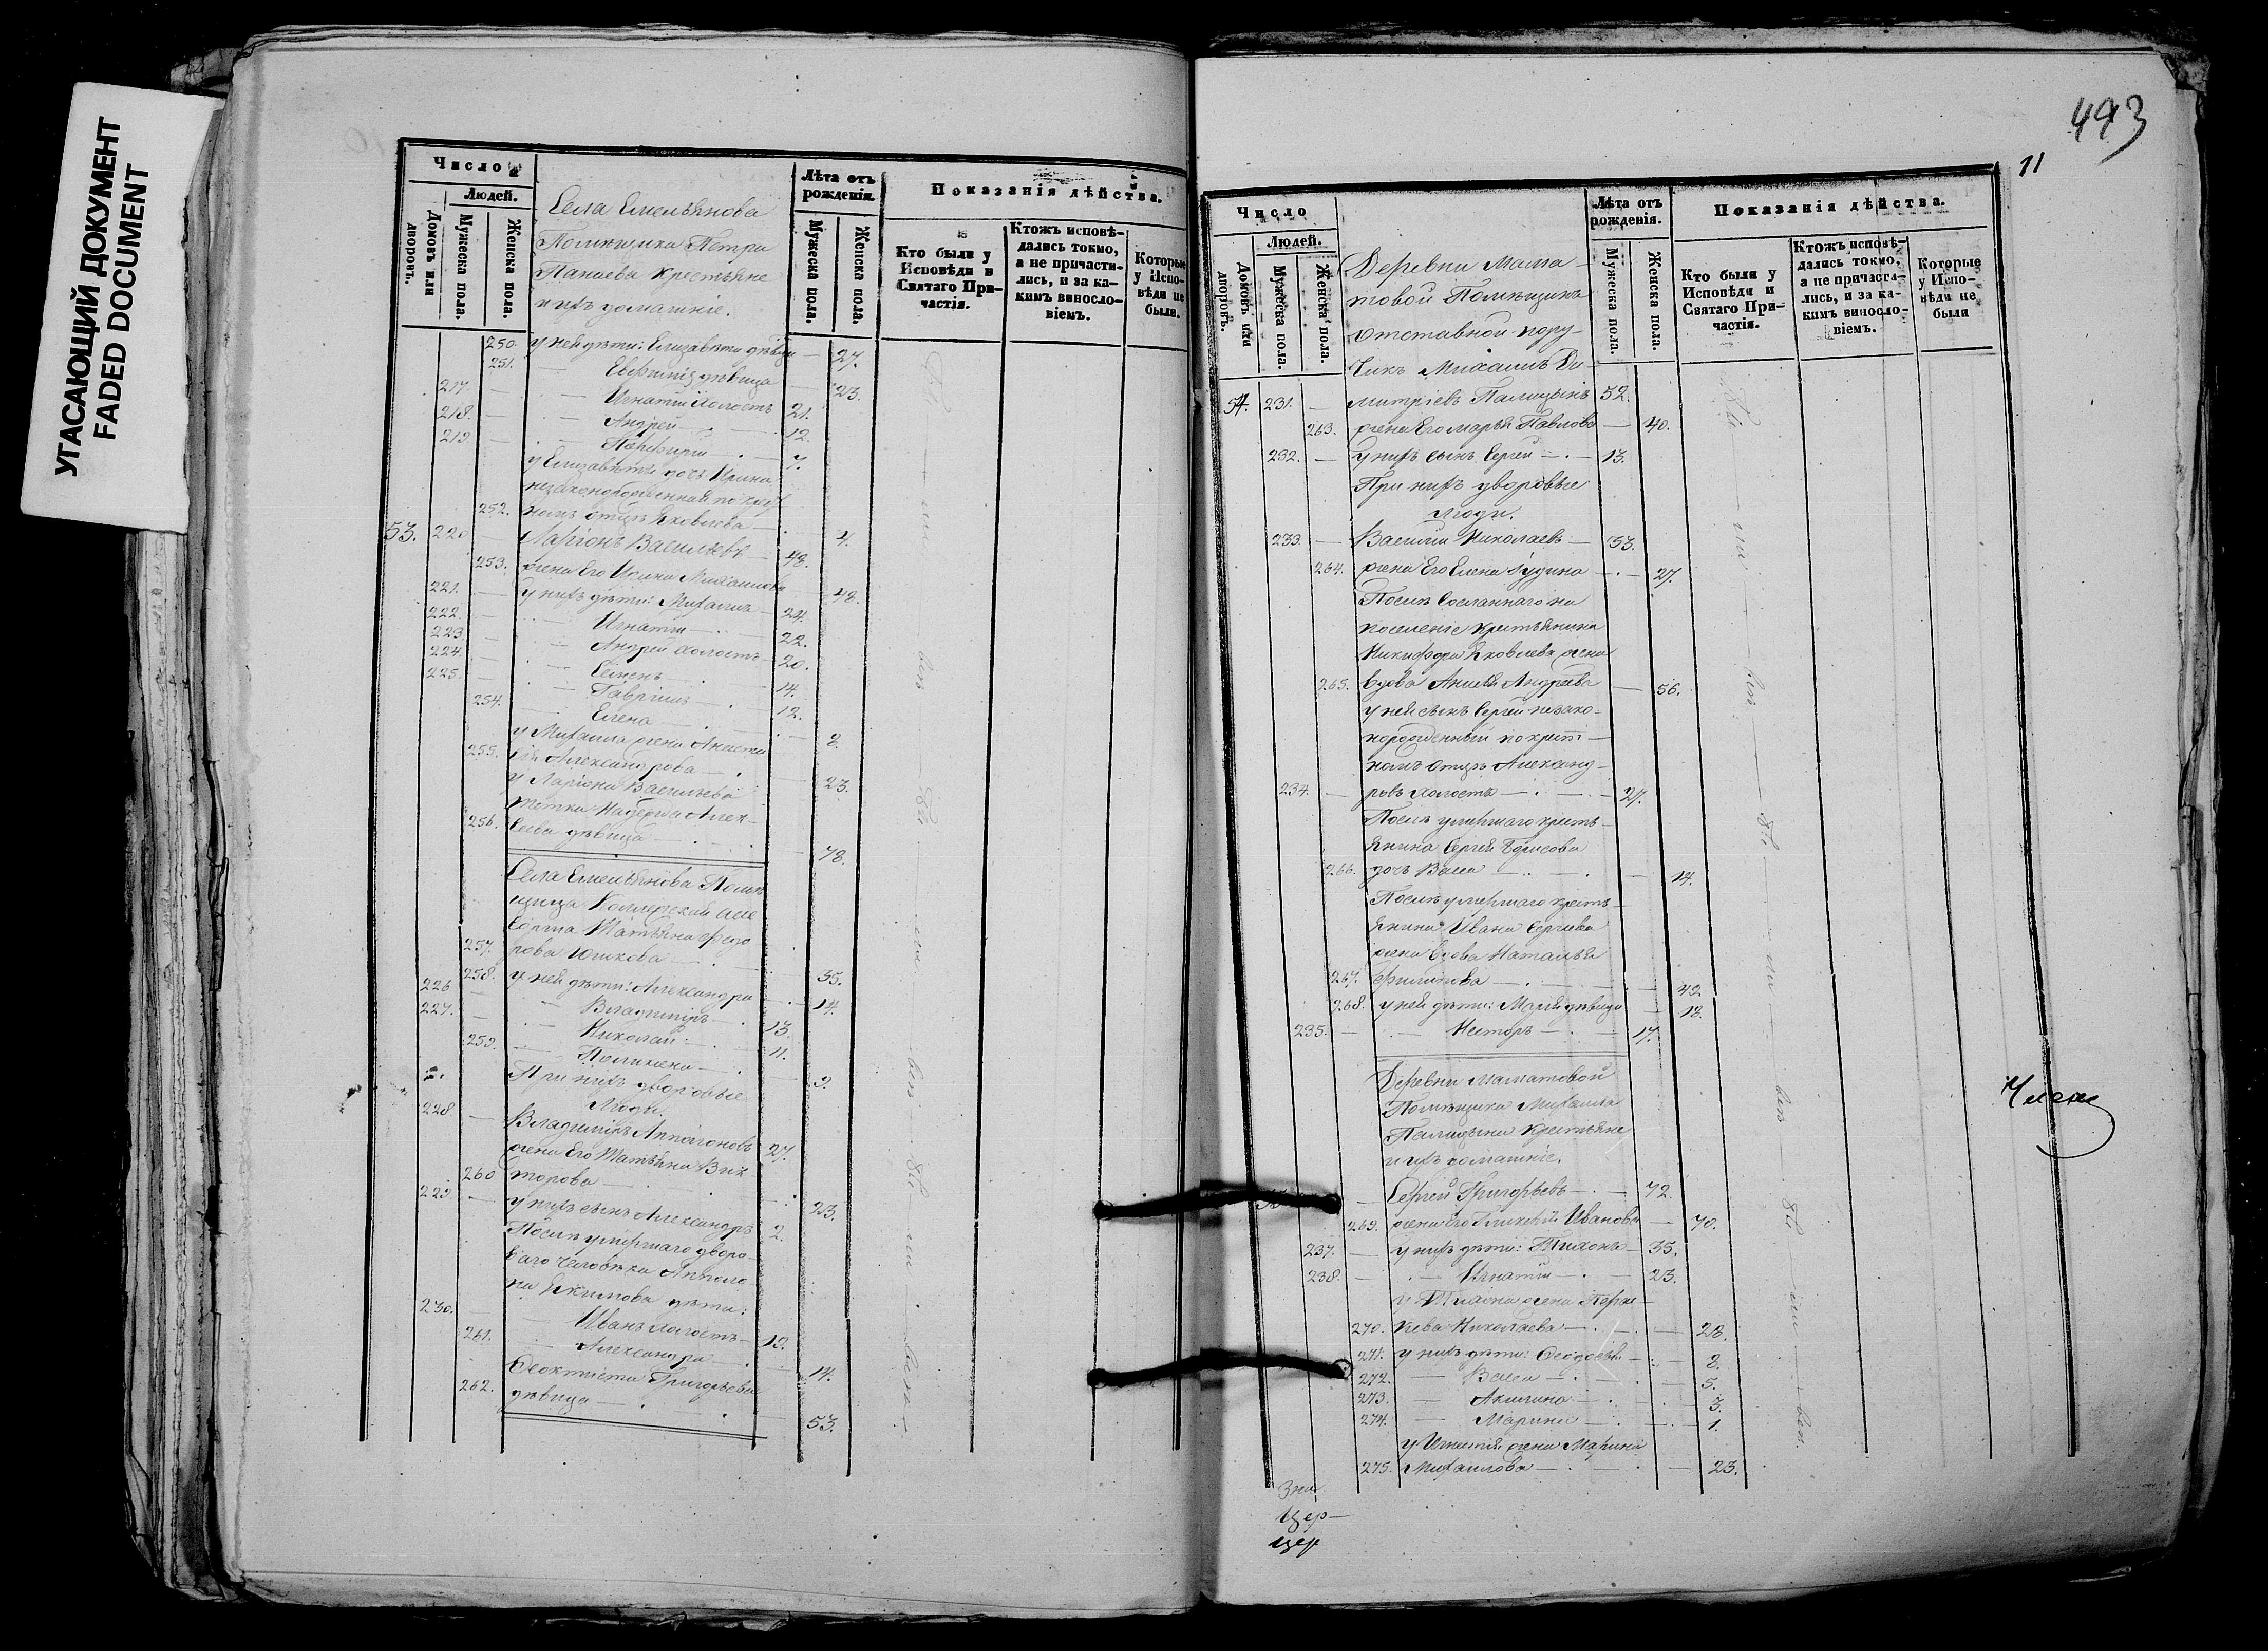 УГАСАЮЩИЙ ДОКУМЕНТ
FADED DOCUMENT
Число
Людей.
Домовъ или дворовъ.
Мужеска пола.
Женска пола.
Села Емельянова
Помѣщика Петра
Панаева Крестьяне
и ихъ домашніе.
Лѣта отъ рожденія.
Мужеска пола.
Женска пола.
Показанія дѣйства.
Кто были у Исповѣди и Святаго Причастія.
Ктожъ исповѣдались токмо, а не причастились, и за какимъ винословіемъ.
Которые у Исповѣди не были.
250. у ней дѣти: Елизавета дѣвица — 27.
251. — Евфимія дѣвица — 23.
217. — Игнатій холостъ 21.
218. — Андрей — 12.
219. — Порфирій — 7.
у Елизаветы дочь Ирина
незаконорожденная по крест
252. номъ отцѣ Яковлева — 4.
53. 220 Ларіонъ Васильевъ — 48.
253. жена Его Ирина Михаилова — 48.
221. — у нихъ дѣти: Михаилъ — 24.
222. — Игнатій — 22.
223. — Андрей холостъ — 20.
224. — Семенъ — 14.
225. — Гавріилъ — 12.
254. — Елена — 8.
у Михаила жена Анаста
255. сія Александрова — 23.
у Ларіона Васильева
тетка Надежда Алек-
256. сѣева дѣвица — 78.
Села Емельянова Помѣ
щица Коллежская Асе
сорша Татьяна Федо
257. рова Юшкова — 35.
258. у ней дѣти: Александра — 14.
226 — Владиміръ — 13.
227. — Николай — 11.
259. — Поликсена — 9.
При нихъ дворовые
Люди.
228 — Владиміръ Апполоновъ 27.
жена Его Татьяна Вик
260 торова — 23.
229. — у нихъ сынъ Александръ 2.
Послѣ умершаго дворо-
ваго человѣка Апполо
на Екимова дѣти:
230. — Иванъ холостъ — 19.
261. — Александра — 14.
Феоктиста Григорьева
262. дѣвица — 53.
493
11
Число
Людей.
Домовъ или дворовъ.
Мужеска пола.
Женска пола.
Деревни Мама-
товой Помѣщикъ
Отставной пору-
чикъ Михаилъ Ди-
Лѣта отъ рожденія.
Мужеска пола.
Женска пола.
Показанія дѣйства.
Кто были у Исповѣди и Святаго Причастія.
Ктожъ исповѣдались токмо, а не причастились, и за какимъ винословіемъ.
Которые у Исповѣди не были
54. 231. — митріевъ Палицынъ 52.
263. жена Его Марья Павлова — 40.
232. — у нихъ сынъ Сергей — 13.
При нихъ дворовые
люди.
233. — Василій Николаевъ — 33.
264. жена Его Елена Іудина — 27.
Послѣ Сосланнаго на
поселеніе крестьянина
Никифора Яковлева жена
265. вдова Анисья Андреева — 56.
у ней сынъ Сергей незако-
норожденный по крест-
номъ отцѣ Александ-
234. — ровъ холостъ — 27.
Послѣ умершаго кресть-
янина Сергея Борисова
266. дочь Васса — 14.
Послѣ умершаго кресть-
янина Ивана Сергеева
жена вдова Наталья
267. Филипова — 42
268. у ней дѣти: Марья дѣвица — 18.
235. — Несторъ — 17.
Деревни Маматовой
Помѣщика Михаила
Палицына Крестьяне
и ихъ домашніе.
— Сергей Григорьевъ — 72.
269. жена Его Гликерія Иванова — 70.
237. — у нихъ дѣти: Тихонъ — 35.
238. — Игнатій — 23.
у Тихона жена Парас-
270. кева Николаева — 28.
271. у нихъ дѣти: Феодосья — 8.
272. — Васса — 5.
273. — Акилина — 3.
274. — Марина — 1.
у Игнатія жена Марина
275. Михаилова — 23.
Член
Зна
цер-
цер